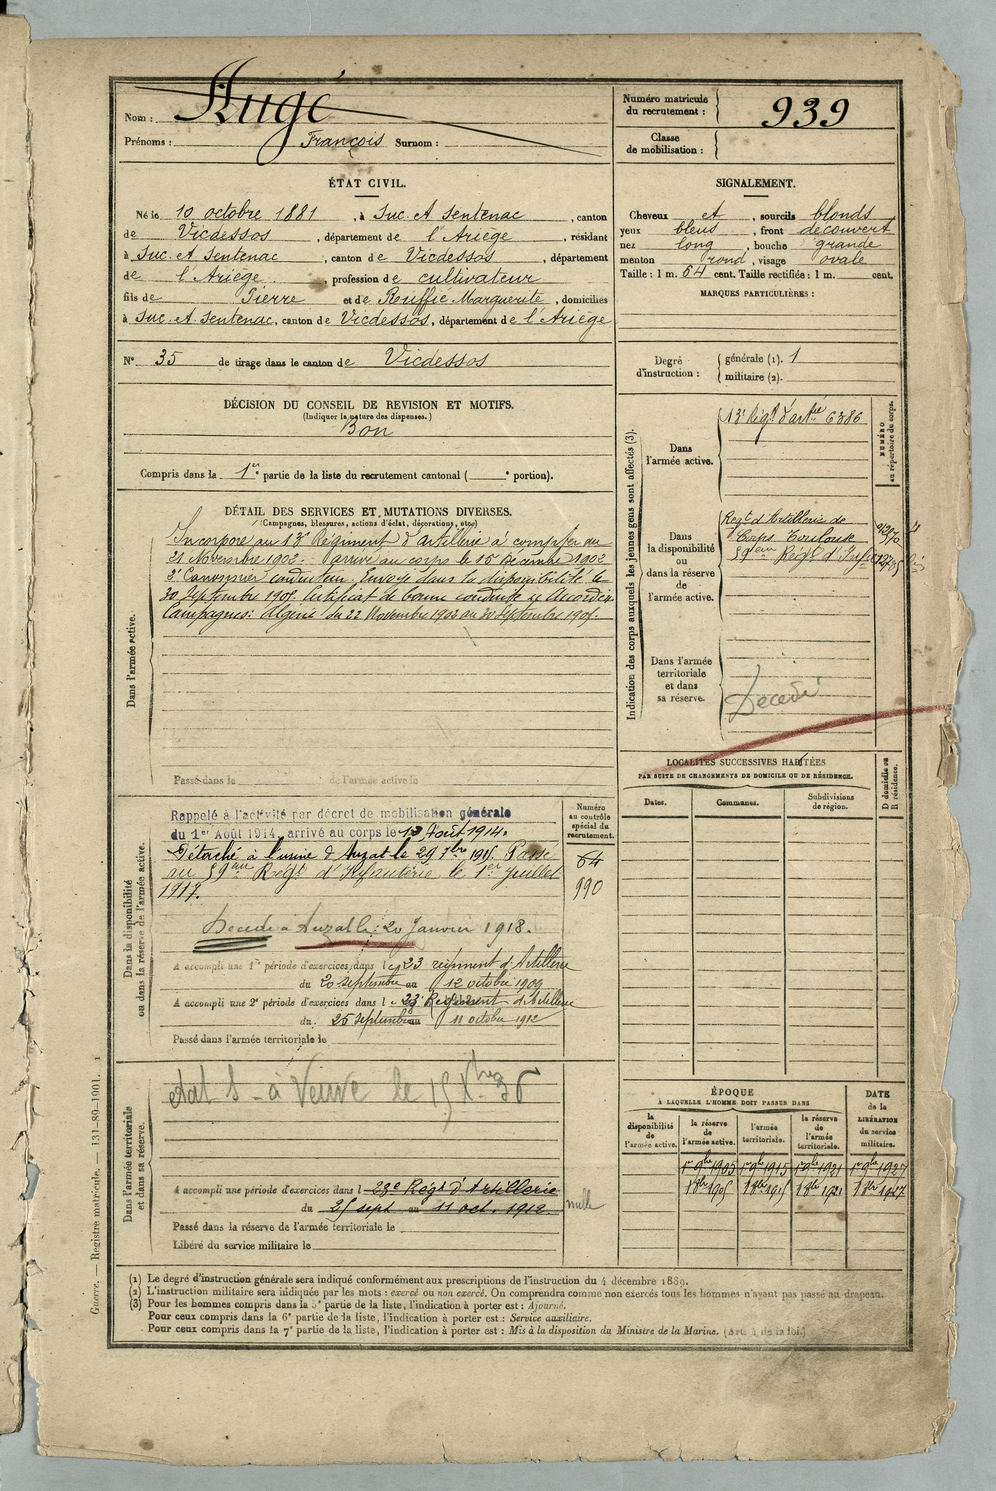 Nom : Augé
Prénoms : François Surnom :
Numéro matricule du recrutement : 939
Classe de mobilisation :
ÉTAT CIVIL.
Né le 10 octobre 1881, à Suc et Sentenac, canton
de Vicdessos, département de l'Ariège, résidant
à Suc et Sentenac, canton de Vicdessos, département
de l'Ariège, profession de cultivateur
fils de Pierre et de Rouffie Marguerite, domiciliés
à Suc et Sentenac, canton de Vicdessos, département de l'Ariège
N° 35 de tirage dans le canton de Vicdessos
SIGNALEMENT.
Cheveux et, sourcils blonds
yeux bleus, front découvert
nez long, bouche grande
menton rond, visage ovale
Taille : 1 m. 64 cent. Taille rectifiée : 1 m. cent.
MARQUES PARTICULIÈRES :
Degré d'instruction : générale (1). 1
militaire (2).
DÉCISION DU CONSEIL DE REVISION ET MOTIFS.
(Indiquer la nature des dispenses.)
Bon
Compris dans la 1re partie de la liste du recrutement cantonal ( e portion).
DÉTAIL DES SERVICES ET MUTATIONS DIVERSES.
(Campagnes, blessures, actions d'éclat, décorations, etc.)
Dans l'armée active.
Incorporé au 13e Régiment d'artillerie à compter du
21 Novembre 1902. arrivé au corps le 15 décembre 1902
2e Canonnier conducteur. Envoyé dans la disponibilité le
20 Septembre 1905. Certificat de bonne conduite Accordé.
Campagnes: Algérie du 22 Novembre 1902 au 20 Septembre 1905.
Passé dans la de l'armée active le
Indication des corps auxquels les jeunes gens sont affectés (3).
NUMÉRO au répertoire du corps.
Dans l'armée active.
13e Régt d'artie 6386
Dans la disponibilité ou dans la réserve de l'armée active.
Regt d'Artillerie de
Corps Toulouse
59eme Régt d'Infie
Dans l'armée territoriale et dans sa réserve.
Décédé
LOCALITÉS SUCCESSIVES HABITÉES
PAR SUITE DE CHANGEMENTS DE DOMICILE OU DE RÉSIDENCE.
Dates. Communes. Subdivisions de région. D domicile ou R résidence.
Dans la disponibilité ou dans la réserve de l'armée active.
Numéro au contrôle spécial du recrutement.
64
990
Rappelé à l'activité par décret de mobilisation générale
du 1er Août 1914, arrivé au corps le 13 Août 1914.
Détaché à l'usine d'Auzat le 29 7bre 1915. Passé
au 59eme Régt d'Infanterie le 1er Juillet
1917.
Décédé à Auzat le 20 Janvier 1918.
A accompli une 1re période d'exercices dans le 23 régiment d'Artillerie
du 20 septembre au 12 octobre 1909
A accompli une 2e période d'exercices dans le 23e Régiment d'Artillerie
du 25 septembre au 11 octobre 1912
Passé dans l'armée territoriale le
Dans l'armée territoriale et dans sa réserve.
à Veuve le 15 Xbre 36
A accompli une période d'exercices dans l 23e Régt d'Artillerie
du 25 sept au 11 oct. 1912.
nulle
Passé dans la réserve de l'armée territoriale le
Libéré du service militaire le
ÉPOQUE
À LAQUELLE L'HOMME DOIT PASSER DANS
la disponibilité de l'armée active. la réserve de l'armée active. l'armée territoriale. la réserve de l'armée territoriale.
DATE de la LIBÉRATION du service militaire.
1er 9bre 1905 1er 9bre 1915 1er 9bre 1921 1er 9bre 1927
1 8bre 1905 1 8bre 1915 1 8bre 1921 1 8bre 1927
(1) Le degré d'instruction générale sera indiqué conformément aux prescriptions de l'instruction du 4 décembre 1889.
(2) L'instruction militaire sera indiquée par les mots : exercé ou non exercé. On comprendra comme non exercés tous les hommes n'ayant pas passé au drapeau.
(3) Pour les hommes compris dans la 5e partie de la liste, l'indication à porter est : Ajourné.
Pour ceux compris dans la 6e partie de la liste, l'indication à porter est : Service auxiliaire.
Pour ceux compris dans la 7e partie de la liste, l'indication à porter est : Mis à la disposition du Ministre de la Marine. (Art. 4 de la loi.)
Guerre. — Registre matricule. — 131-89-1901. 1